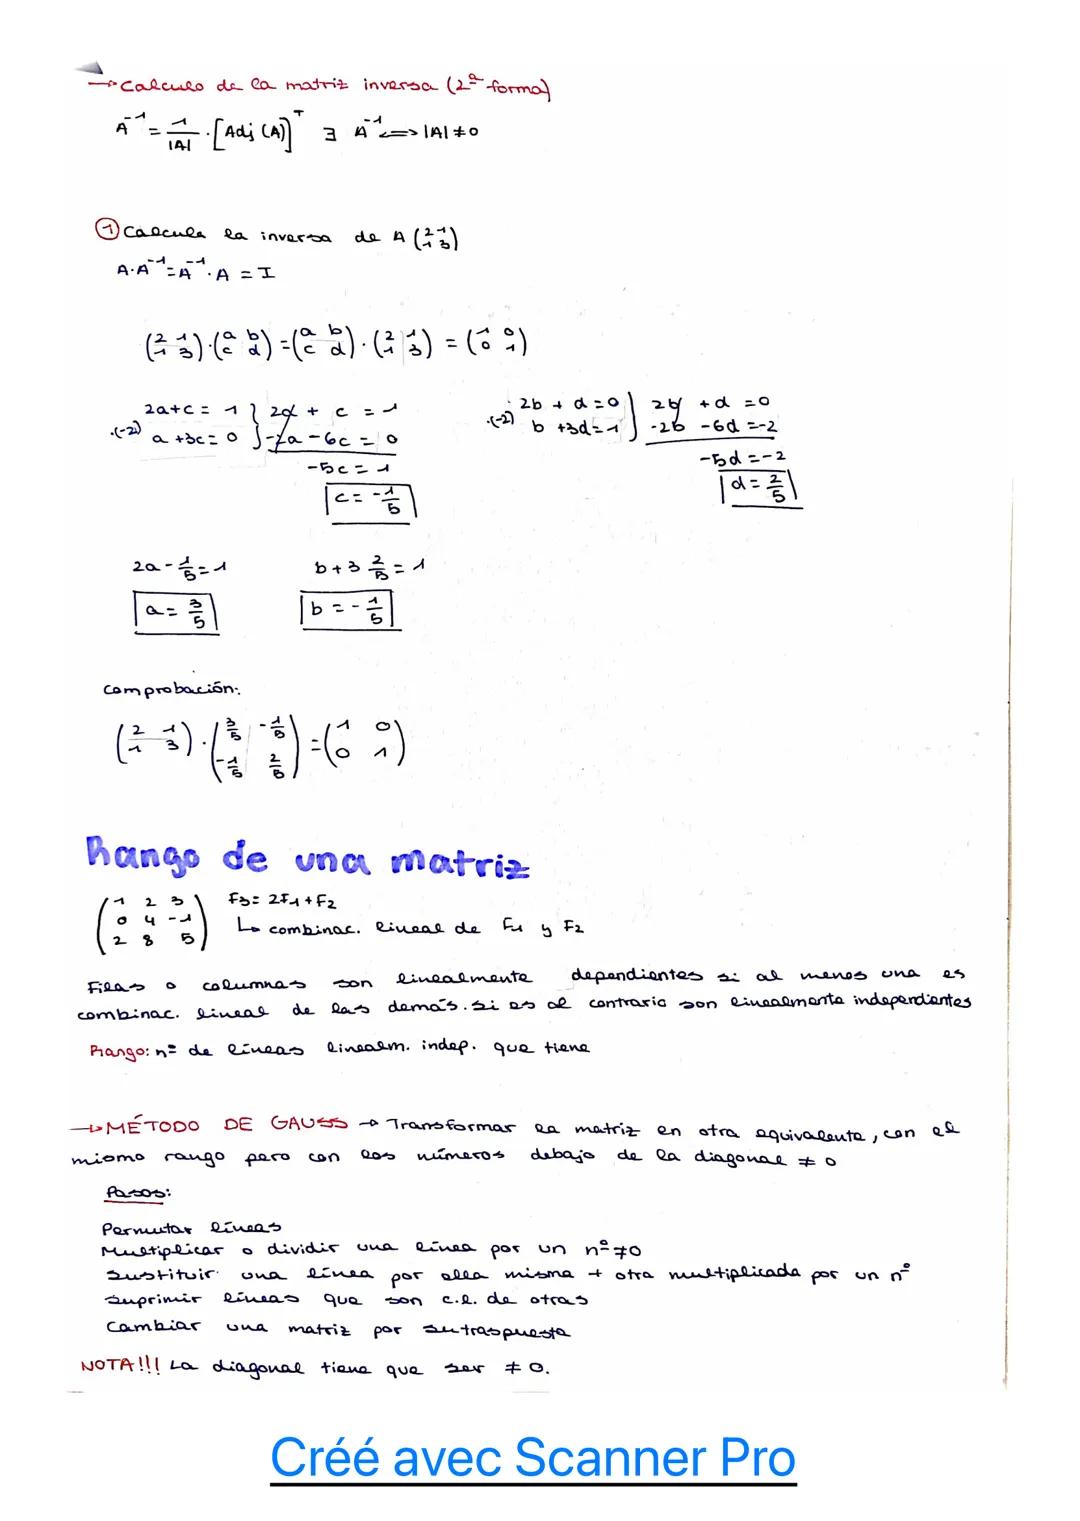 → Calculo de la matriz inversa (2ª forma)
A⁻¹ = 1/|A| · [Adj (A)]ᵀ ∃ A⁻¹ <=> |A| ≠ 0
① Calcula la inversa de A (2 1 / 1 3)
A·A⁻¹ = A⁻¹·A = I
(2 1 / 1 3)·(a b / c d) = (a b / c d)·(2 1 / 1 3) = (1 0 / 0 1)
2a+c = 1 } 2a + c = 1
·(-2) a +3c = 0 } -2a - 6c = 0
-5c = 1
c = -1/5
2b + d = 0 } 2b + d = 0
·(-2) b +3d = 1 } -2b -6d = -2
-5d = -2
d = 2/5
2a - 1/5 = 1
a = 3/5
b + 3 2/5 = 1
b = -1/5
comprobación:
(2 1 / 1 3) · (3/5 -1/5 / -1/5 2/5) = (1 0 / 0 1)
Rango de una matriz
(1 2 3 / 0 4 -1 / 2 8 5) F3 = 2F1 + F2
↳ combinac. lineal de F1 y F2
Filas o columnas son linealmente dependientes si al menos una es
combinac. lineal de las demás. si es al contrario son linealmente independientes
Rango: nº de líneas linealm. indep. que tiene
→ MÉTODO DE GAUSS → Transformar la matriz en otra equivalente, con el
mismo rango pero con los números debajo de la diagonal ≠ 0
Pasos:
Permutar líneas
Multiplicar o dividir una línea por un nº ≠ 0
Sustituir una línea por ella misma + otra multiplicada por un nº
Suprimir líneas que son c.l. de otras
Cambiar una matriz por su traspuesta
NOTA!!! La diagonal tiene que ser ≠ 0.
Créé avec Scanner Pro